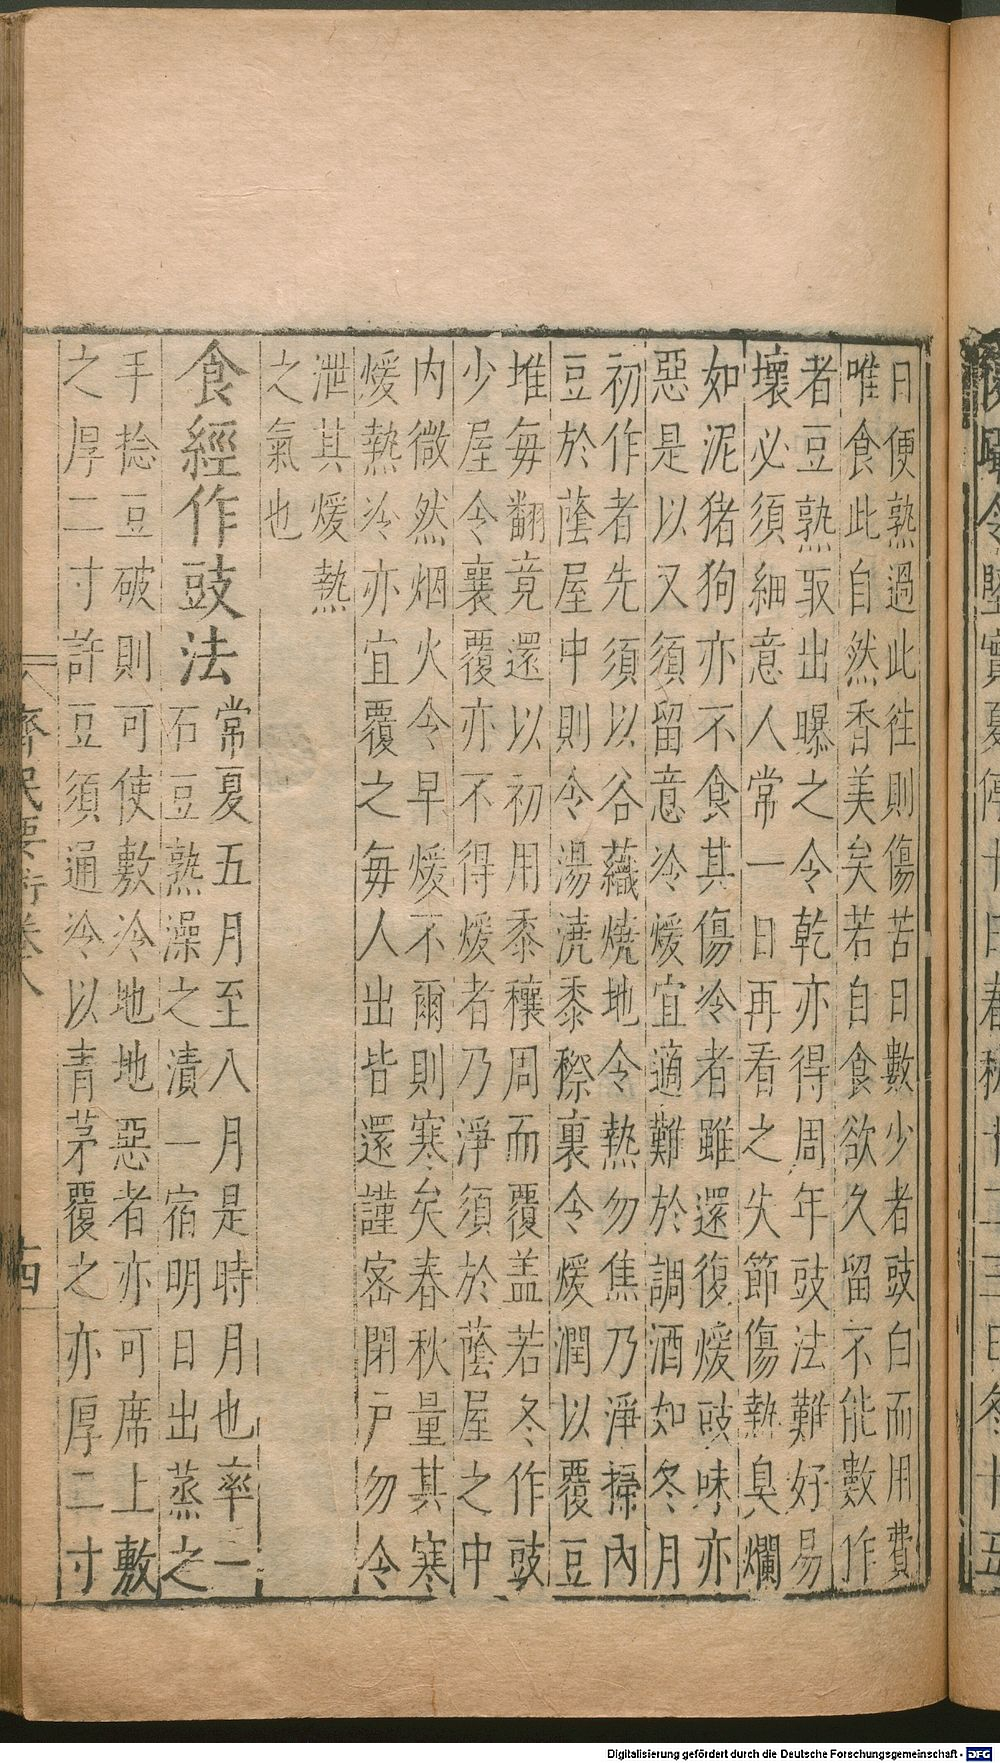 日便熟過此往則傷苦日數少者豉白而用費
唯食此自然香美矣若自食欲久留不能數作
者豆熟取出曝之令乾亦得周年豉法難好易
壞必須細意人常一日再看之失節傷熱臭爛
如泥猪狗亦不食其傷冷者雖還復煖豉味亦
惡是以又須留意冷煖宜適難於調酒如冬月
初作者先須以谷蘵燒地令熱勿焦乃淨掃內
豆於蔭屋中則令湯澆黍穄裏令煖潤以覆豆
堆每翻竟還以初用黍穰周而覆盖若冬作豉
少屋令襄覆亦不得煖者乃淨須於蔭屋之中
內微然烟火令早煖不爾則寒矣春秋量其寒
煖熱冷亦宜覆之每人出皆還謹密閉戶勿令
泄其煖熱
之氣也
食經作豉法
常夏五月至八月是時月也率一
石豆熟澡之漬一宿明日出蒸之
手捻豆破則可使敷冷地地惡者亦可席上敷
之厚二寸許豆須通冷以青茅覆之亦厚二寸
齊民要術卷八
Digitalisierung gefördert durch die Deutsche Forschungsgemeinschaft - DFG